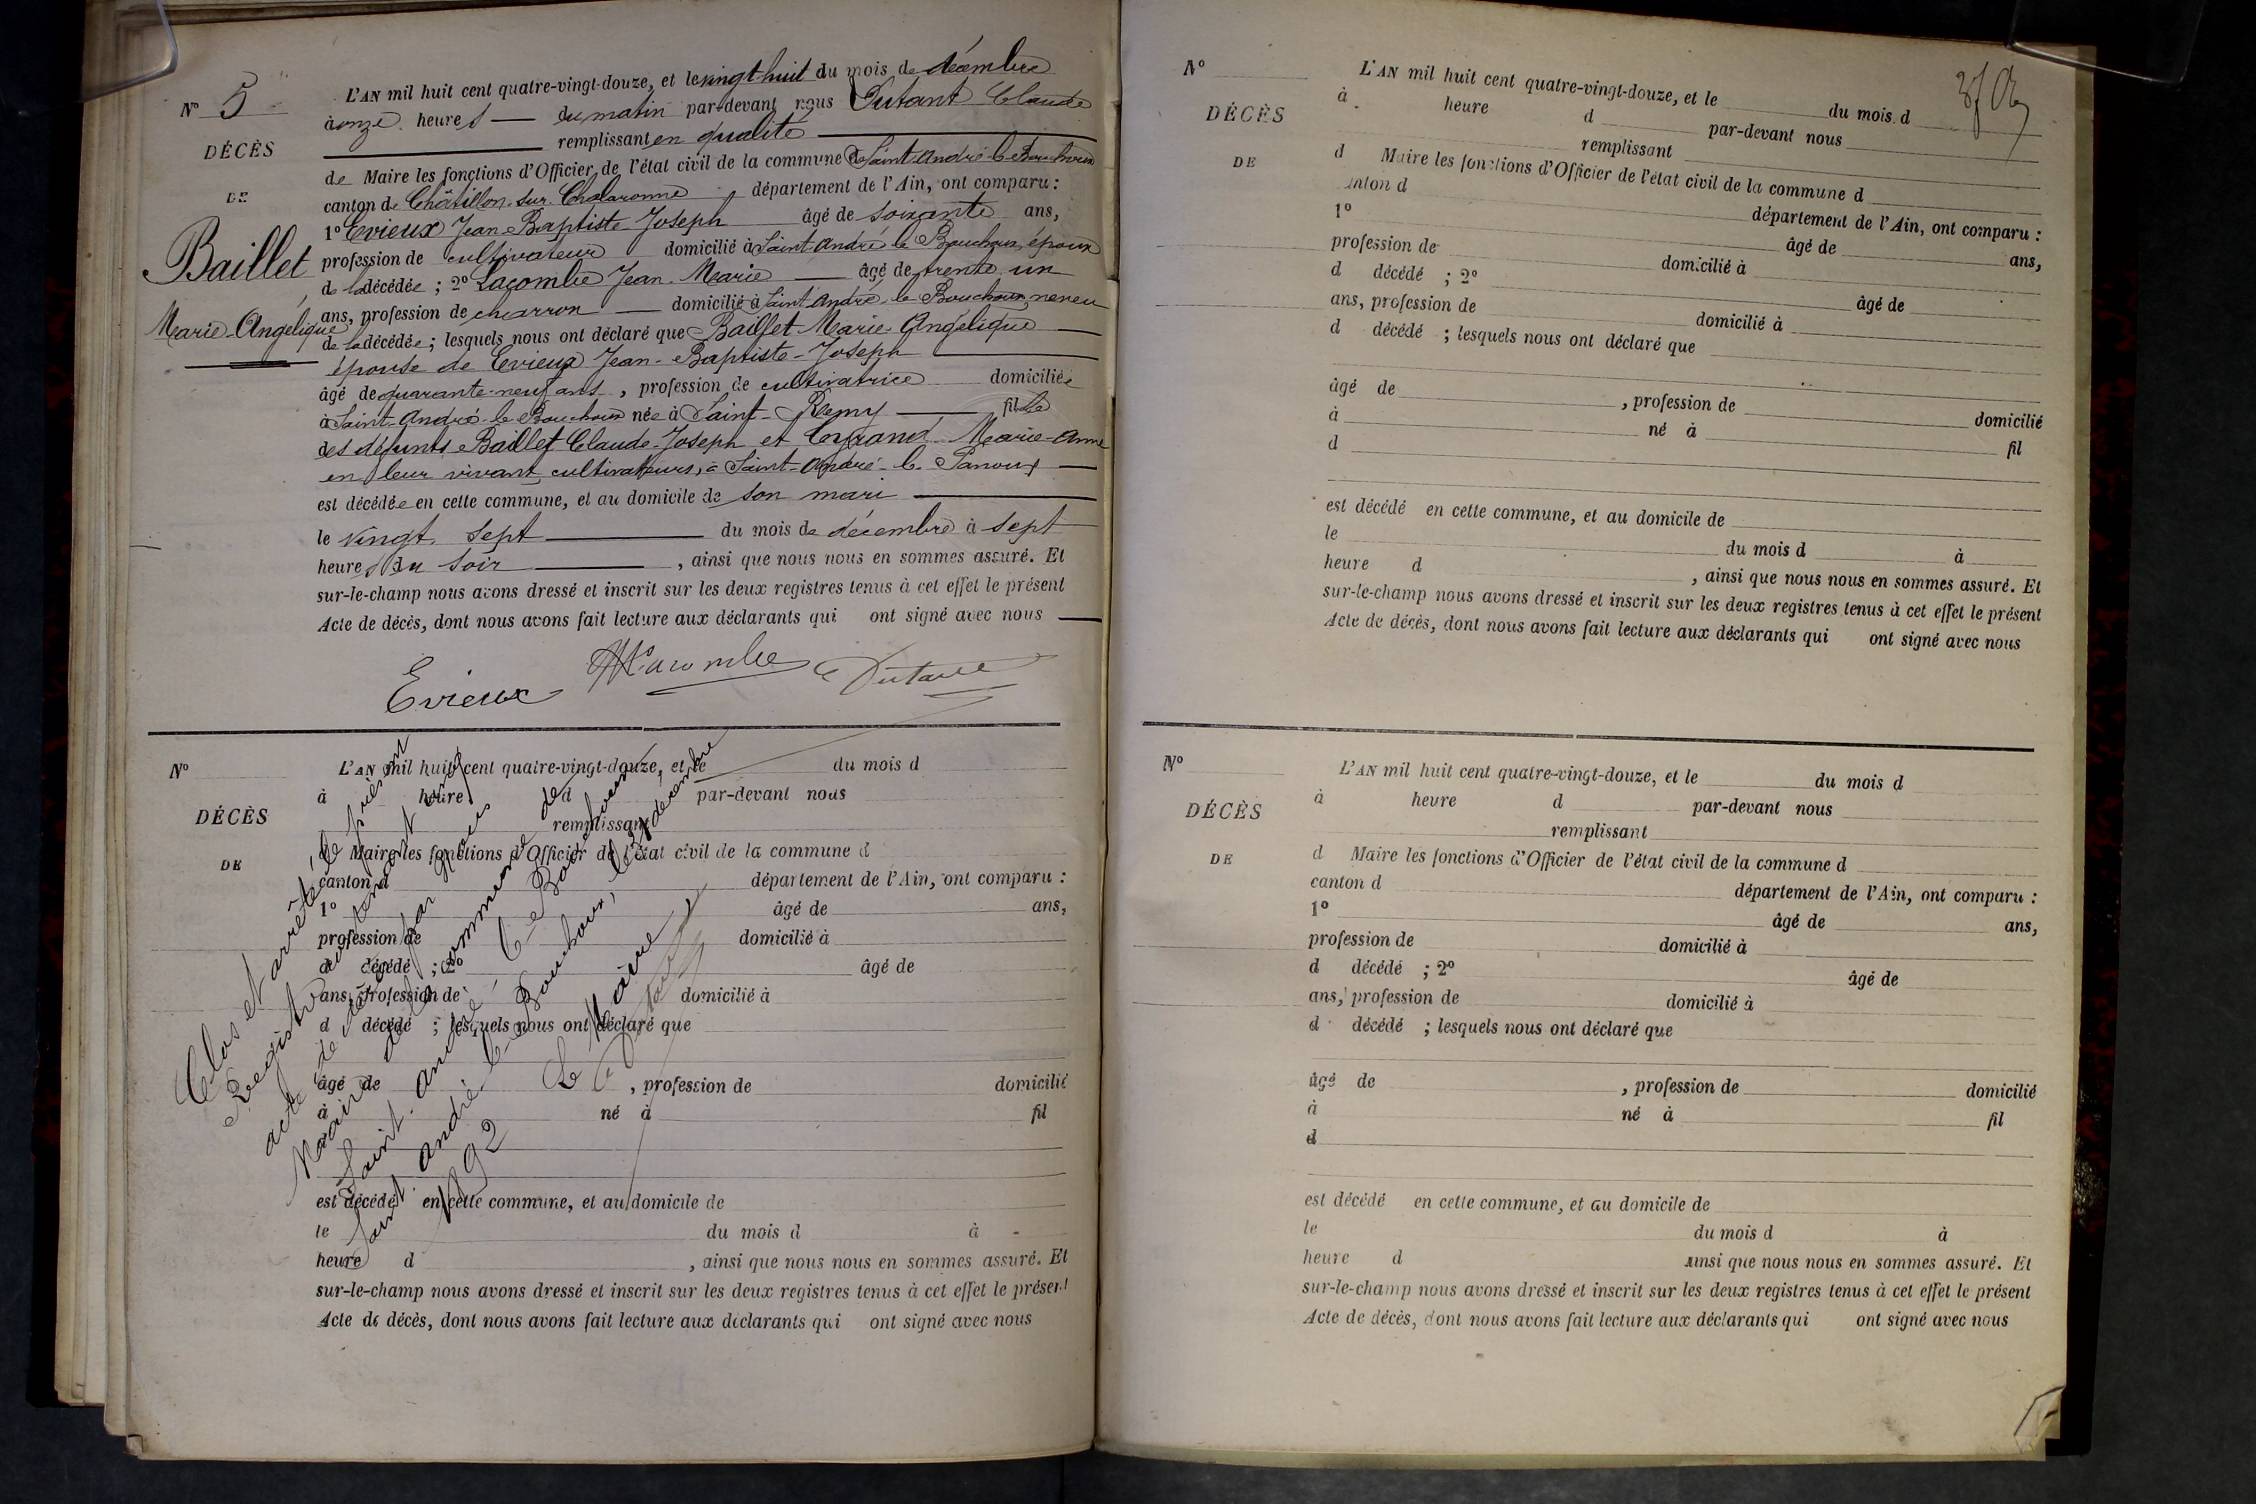 N° 5
DÉCÈS
DE
Baillet
Marie-Angélique
L'AN mil huit cent quatre-vingt-douze, et le vingt-huit du mois de décembre
à onze heures du matin par-devant nous Dutant Claude
remplissant en qualité
de Maire les fonctions d'Officier de l'état civil de la commune de Saint-André-le-Bouchoux
canton de Châtillon-sur-Chalaronne département de l'Ain, ont comparu :
1° Evieux Jean-Baptiste-Joseph âgé de soixante ans,
profession de cultivateur domicilié à Saint-André-le-Bouchoux, époux
de la décédée ; 2° Lacombe Jean-Marie âgé de trente un
ans, profession de charron domicilié à Saint-André-le-Bouchoux, neveu
de la décédée ; lesquels nous ont déclaré que Baillet Marie-Angélique
épouse de Evieux Jean-Baptiste-Joseph
âgé de quarante-neuf ans, profession de cultivatrice domiciliée
à Saint-André-le-Bouchoux née à Saint-Remy fille
des défunts Baillet Claude-Joseph et Marie-Anne
en leur vivant cultivateurs, à Saint-André-le-Panoux
est décédée en cette commune, et au domicile de son mari
le vingt sept du mois de décembre à sept
heures du soir, ainsi que nous nous en sommes assuré. Et
sur-le-champ nous avons dressé et inscrit sur les deux registres tenus à cet effet le présent
Acte de décès, dont nous avons fait lecture aux déclarants qui ont signé avec nous
Evieux Lacombe
N°
DÉCÈS
DE
L'AN mil huit cent quatre-vingt-douze, et le du mois d
à heure d par-devant nous
remplissant
d Maire les fonctions d'Officier de l'état civil de la commune d
canton d département de l'Ain, ont comparu :
1° âgé de ans,
profession de domicilié à
d décédé ; 2° âgé de
ans, profession de domicilié à
d décédé ; lesquels nous ont déclaré que
âgé de , profession de domicilié
à né à fil
est décédé en cette commune, et au domicile de
le du mois d à
heure d , ainsi que nous nous en sommes assuré. Et
sur-le-champ nous avons dressé et inscrit sur les deux registres tenus à cet effet le présent
Acte de décès, dont nous avons fait lecture aux déclarants qui ont signé avec nous
Clos et arrêté, le présent
Registre contenant cinq
acte de décès par nous
Maire de la commune de
Saint-André-le-Bouchoux
Saint-André-le-Bouchoux, le 31 décembre
1892
Le Maire
N°
DÉCÈS
DE
L'AN mil huit cent quatre-vingt-douze, et le du mois d
à heure d par-devant nous
remplissant
d Maire les fonctions d'Officier de l'état civil de la commune d
anton d département de l'Ain, ont comparu :
1° âgé de ans,
profession de domicilié à
d décédé ; 2° âgé de
ans, profession de domicilié à
d décédé ; lesquels nous ont déclaré que
âgé de , profession de domicilié
à né à fil
d
est décédé en cette commune, et au domicile de
le du mois d à
heure d , ainsi que nous nous en sommes assuré. Et
sur-le-champ nous avons dressé et inscrit sur les deux registres tenus à cet effet le présent
Acte de décès, dont nous avons fait lecture aux déclarants qui ont signé avec nous
N°
DÉCÈS
DE
L'AN mil huit cent quatre-vingt-douze, et le du mois d
à heure d par-devant nous
remplissant
d Maire les fonctions d'Officier de l'état civil de la commune d
canton d département de l'Ain, ont comparu :
1° âgé de ans,
profession de domicilié à
d décédé ; 2° âgé de
ans, profession de domicilié à
d décédé ; lesquels nous ont déclaré que
âgé de , profession de domicilié
à né à fil
d
est décédé en cette commune, et au domicile de
le du mois d à
heure d ainsi que nous nous en sommes assuré. Et
sur-le-champ nous avons dressé et inscrit sur les deux registres tenus à cet effet le présent
Acte de décès, dont nous avons fait lecture aux déclarants qui ont signé avec nous